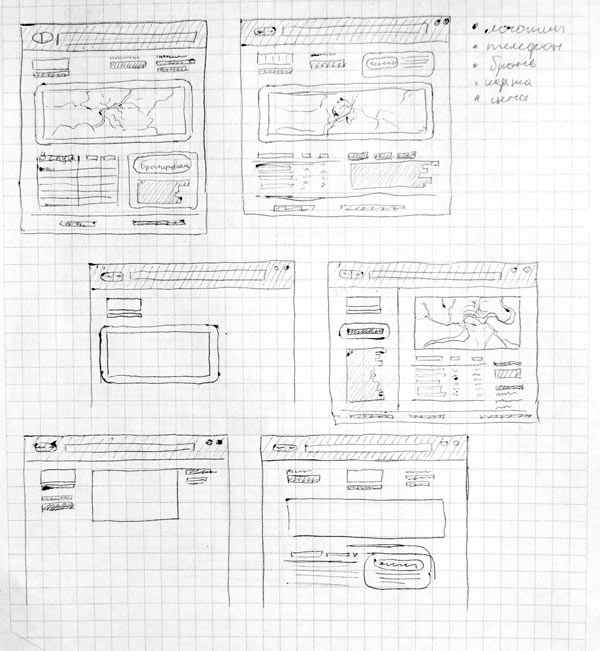 • логотип
• телефон
• бронь
• карта
• цены
бронирован